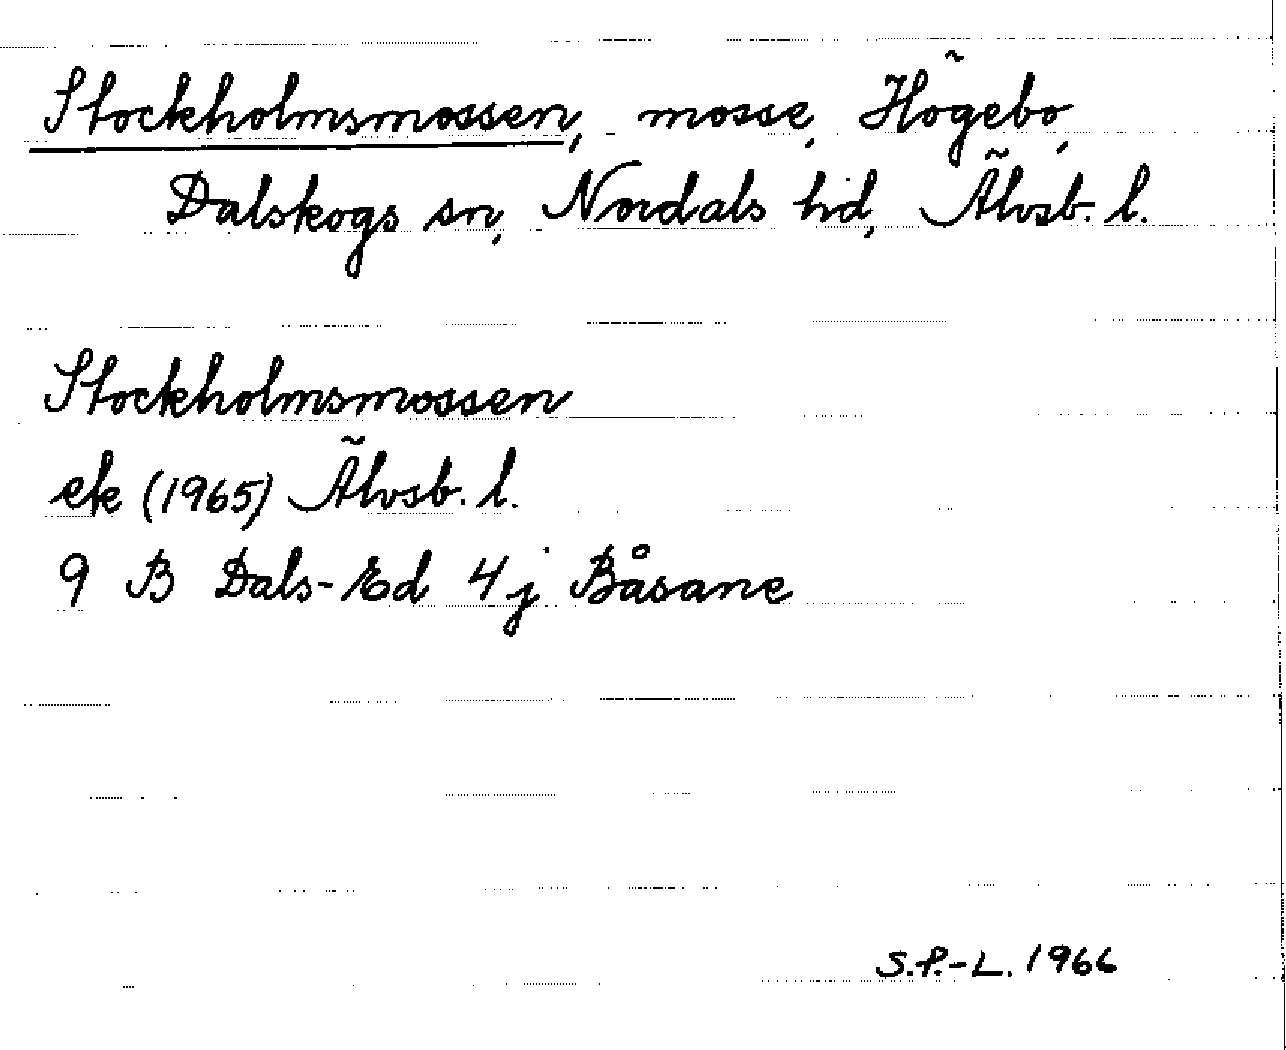 Stockholmsmossen, mosse, Högebo,
Dalskogs sn, Nordals hd, Älvsb. l.
Stockholmsmossen
ek (1965) Älvsb. l.
9 B Dals-Ed 4j Båsane
S.P.-L. 1966